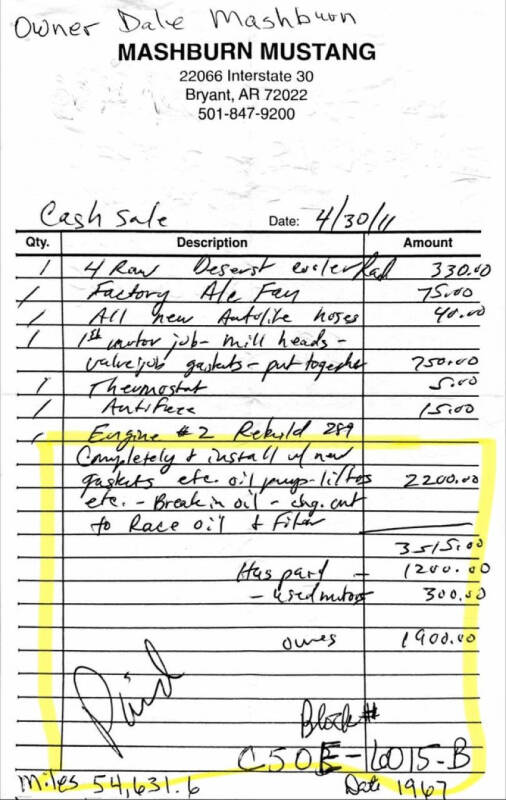 Owner Dale Mashburn
MASHBURN MUSTANG
22066 Interstate 30
Bryant, AR 72022
501-847-9200
Cash sale Date: 4/30/11
Qty. Description Amount
1 4 Raw Deserst cooler Rad 330.00
1 Factory A/c Fan 75.00
1 All new Autolite hoses 40.00
1 1st motor job - mill heads -
valve job gaskets - put together 750.00
1 Thermostat 5.00
1 Antifreze 15.00
1 Engine #2 Rebuild 289
Completely & install w/ new
gaskets etc. oil pump - lifters 2200.00
etc. - Break in oil - chg. out
to Race oil & Filter
3515.00
Has paid - 1200.00
- used motor 300.00
owes 1900.00
Paid
Block #
C50E-6015-B
Miles 54,631.6 Date 1967